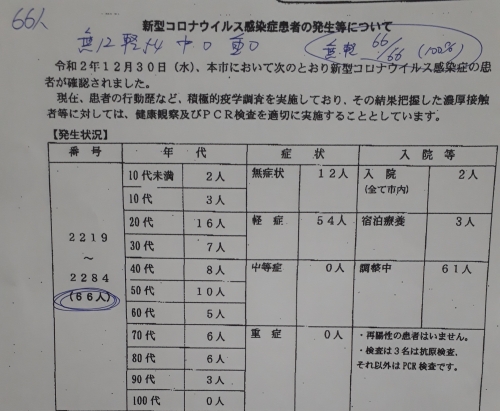 66人
新型コロナウイルス感染症患者の発生等について
無12 軽54 中0 重0
無・軽 66/66 (100%)
令和2年12月30日(水)、本市において次のとおり新型コロナウイルス感染症の患
者が確認されました。
現在、患者の行動歴など、積極的疫学調査を実施しており、その結果把握した濃厚接触
者等に対しては、健康観察及びPCR検査を適切に実施することとしています。
【発生状況】
番号 年代 症状 入院等
2219
~
2284
(66人)
10代未満 2人
10代 3人
20代 16人
30代 7人
40代 8人
50代 10人
60代 5人
70代 6人
80代 6人
90代 3人
100代 0人
無症状 12人
軽症 54人
中等症 0人
重症 0人
入院 2人
(全て市内)
宿泊療養 3人
調整中 61人
・再陽性の患者はいません。
・検査は3名は抗原検査、
それ以外はPCR検査です。